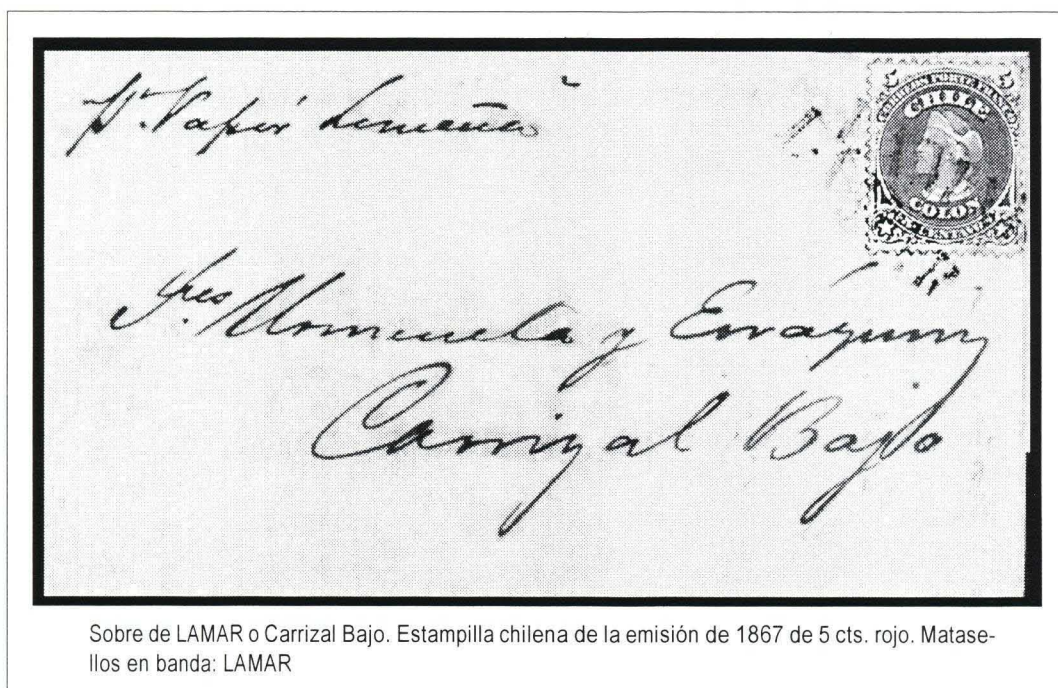 pr. Vapor Limeña
5 5
CORREOS PORTE FRANCO
CHILE
COLON
CENTAVOS
Sres y Errázuriz
Carrizal Bajo
Sobre de LAMAR o Carrizal Bajo. Estampilla chilena de la emisión de 1867 de 5 cts. rojo. Matase-
llos en banda: LAMAR